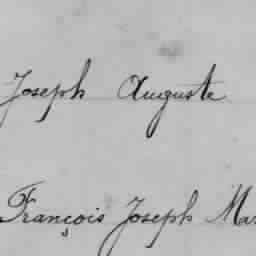 Joseph Auguste
François Joseph